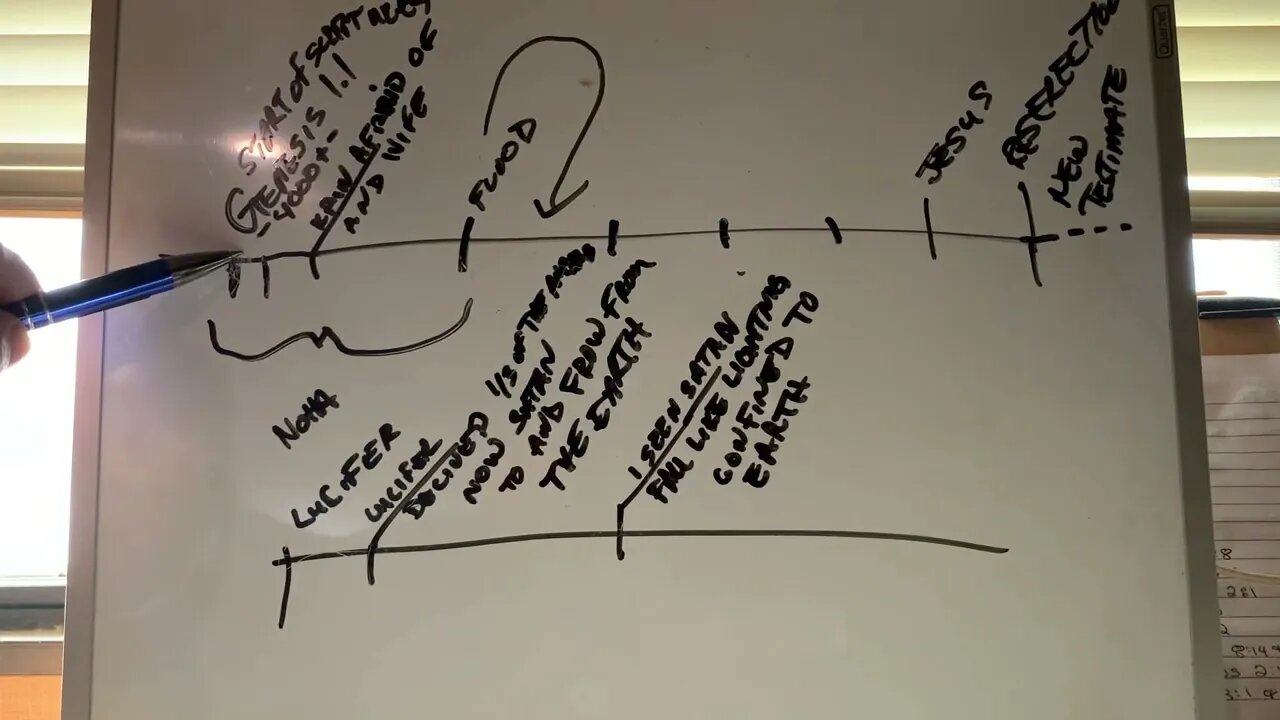 START of SCRIPTURES
GENESIS 1:1
-4000+-
KAIN AFRAID OF
AND WIFE
FLOOD
JESUS
NEW
TESTIMATE
NOHA
LUCIFER
LUCIFER
DECIVED 1/3 OF THE
NOW SATAN
TO AND FROW FROM
THE EARTH
I SEEN SATAN
FALL LIKE LIGHTING
CONFINED TO
EARTH
QUARTET
8
281
2
8:14
2:
3:1